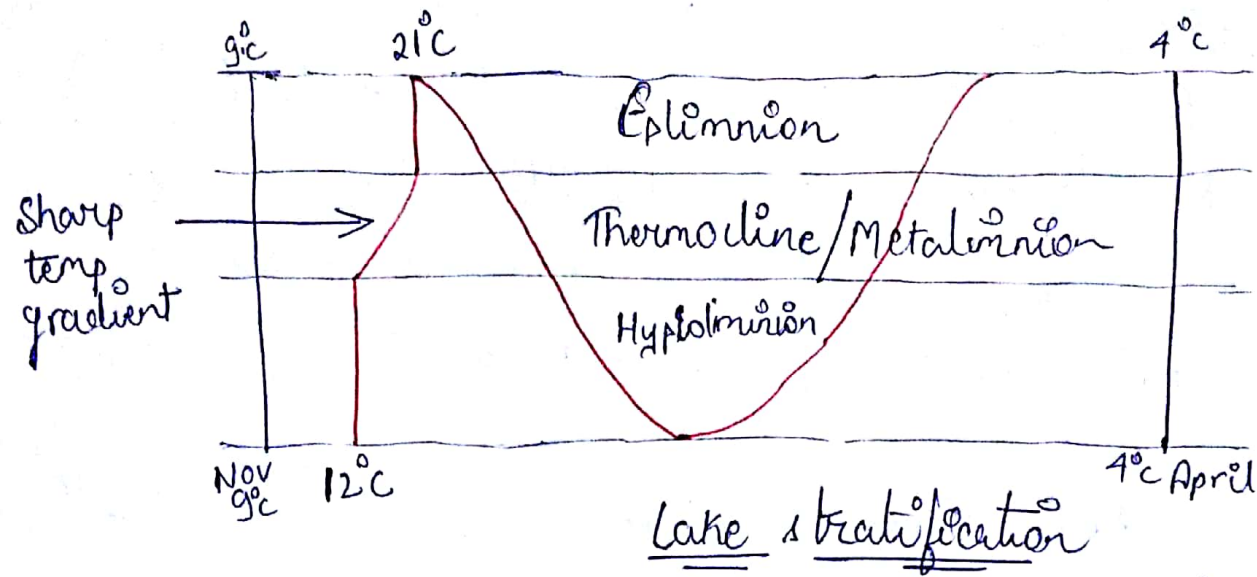 9°C 21°C 4°C
Epilimnion
Sharp
temp
gradient
Thermocline/Metalimnion
Hypiolimnion
Nov
9°C
12°C
4°C April
Lake stratification